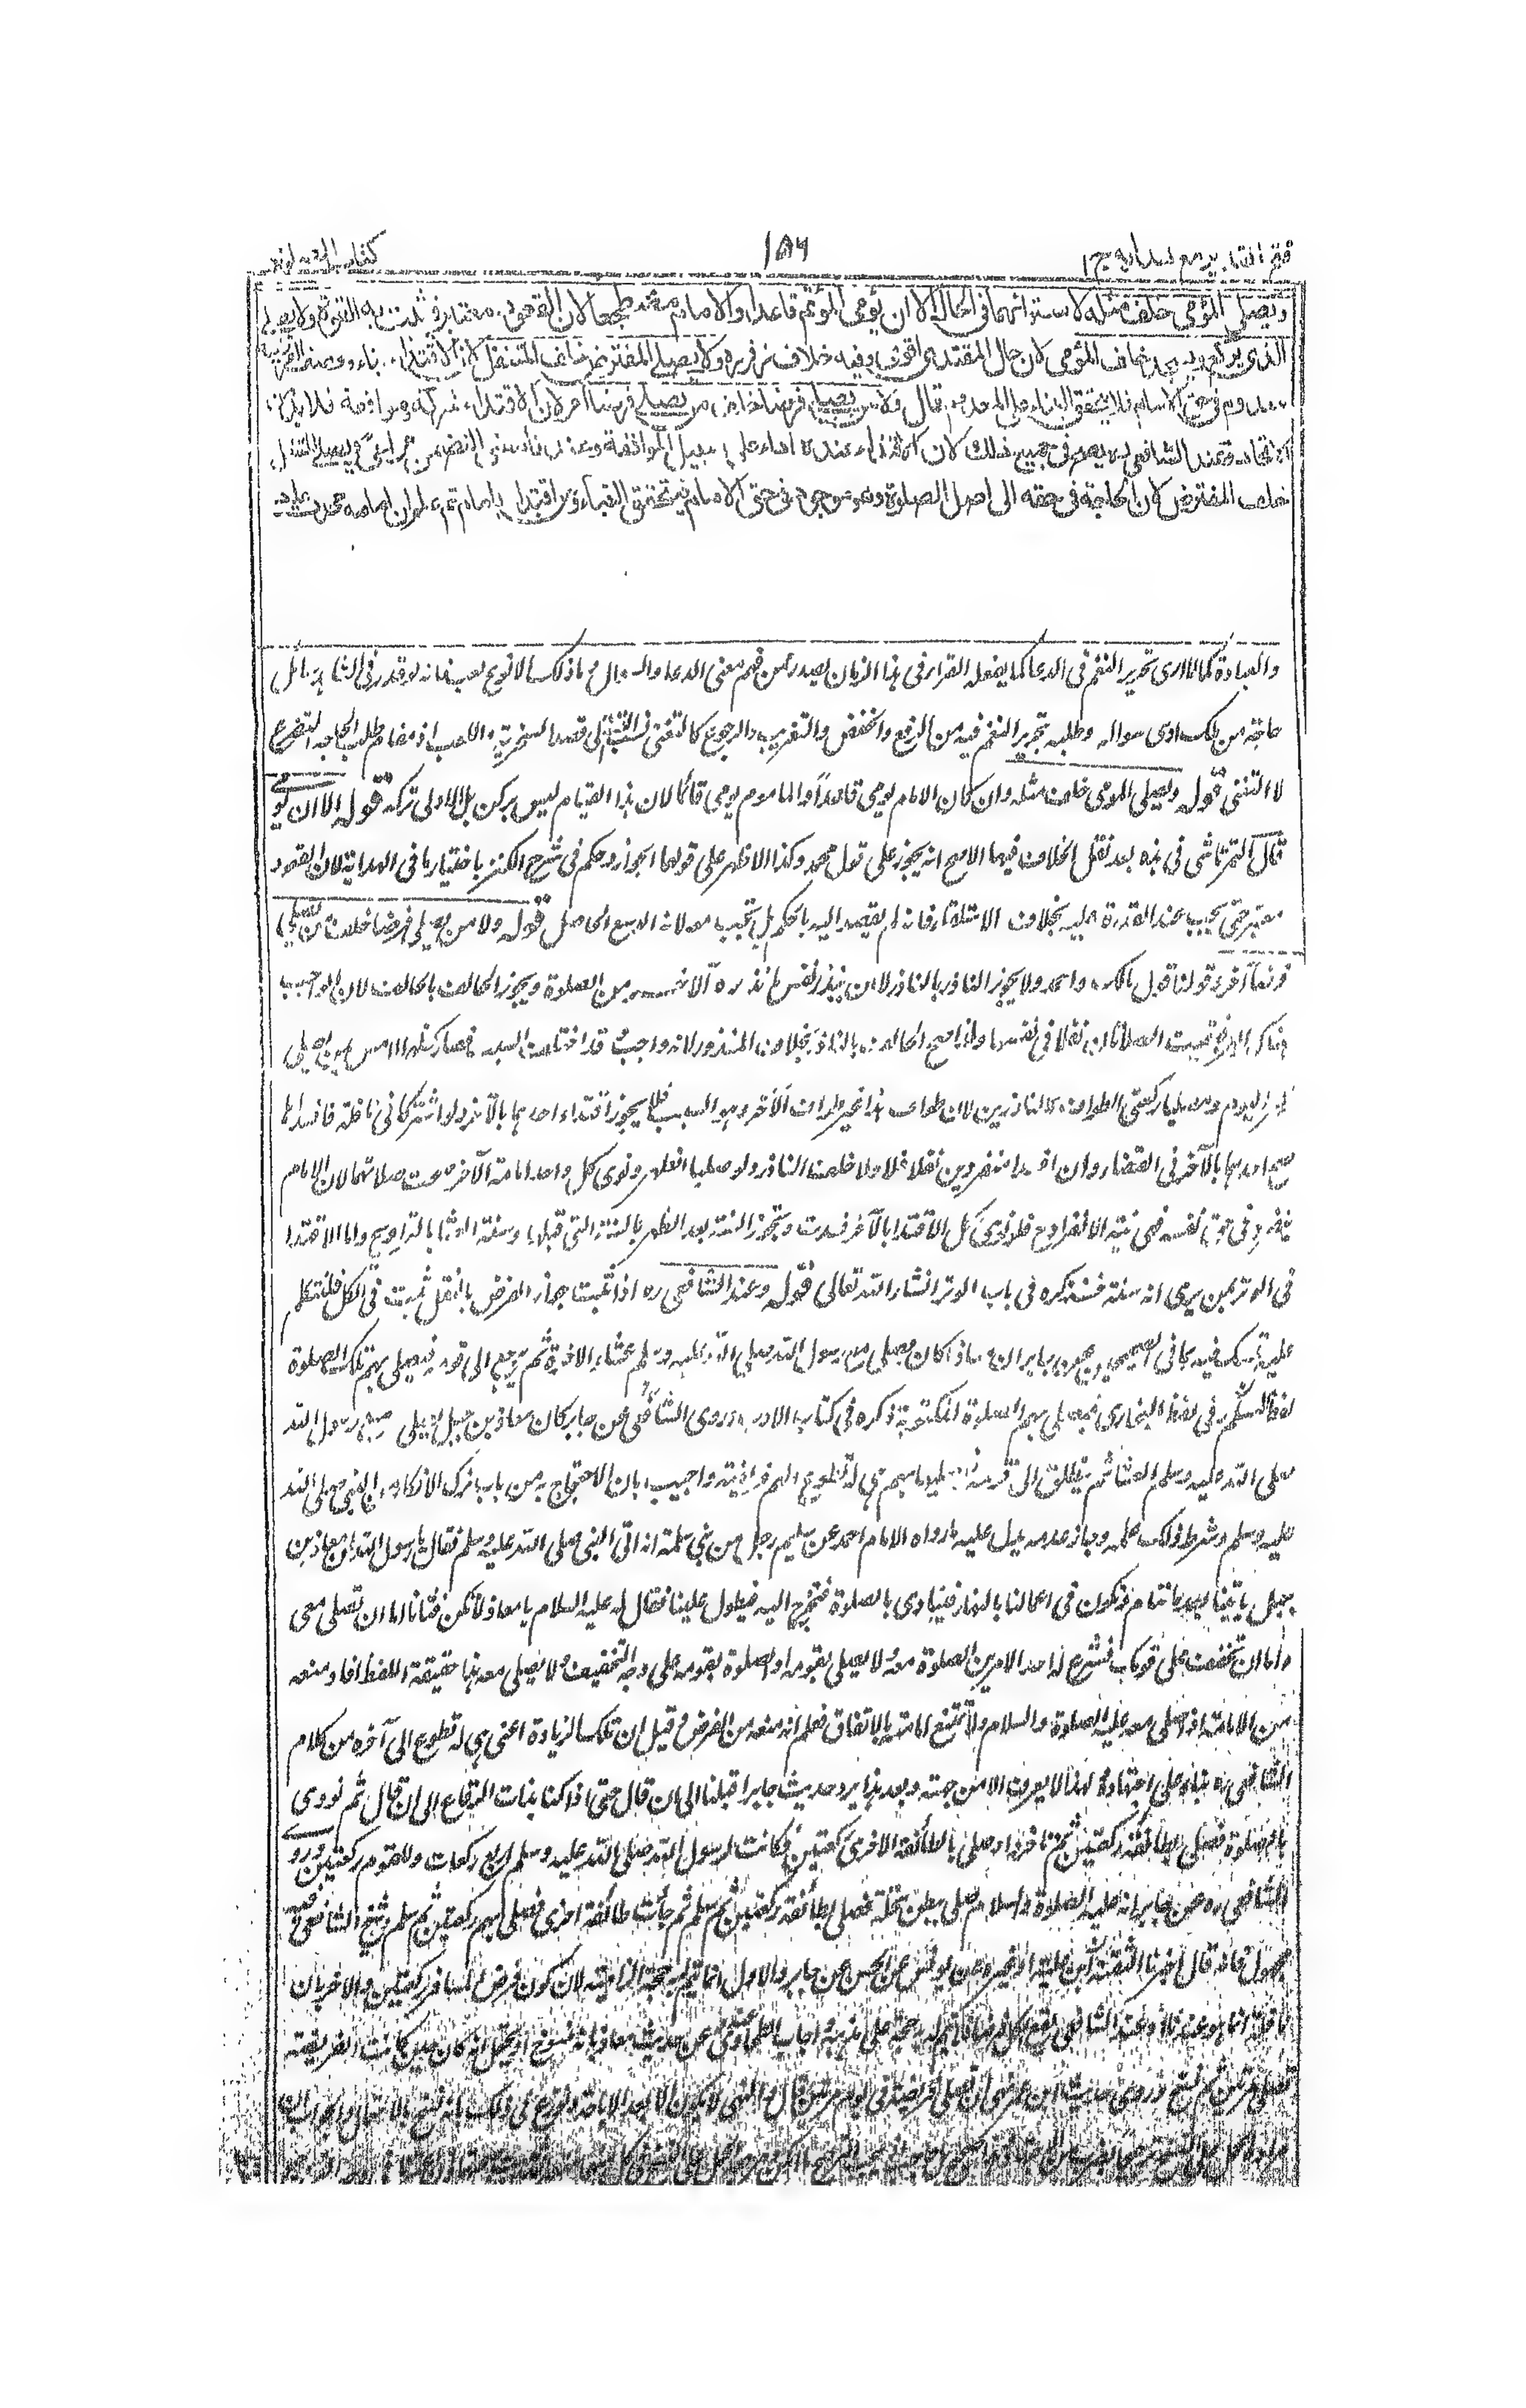 فتح القدير مع هدايه ج ١ ١٥٦ كتاب الصلوة
ويصلي المؤمي خلف مثله لاستوائهما في الحال الا ان يؤمي المؤتم قاعدا والامام مضطجعا لان القعود معتبر فثبت به القوة ولا يصلي
الذي يركع ويسجد خلف المؤمي لان حال المقتدي اقوى وفيه خلاف زفر ره ولا يصلي المفترض خلف المتنفل لان الاقتداء بناء ووصف الفرضية
معدوم في حق الامام فلا يتحقق البناء على المعدوم قال ولا من يصلي فرضا خلف من يصلي فرضا آخر لان الاقتداء شركة وموافقة فلا بد من
الاتحاد وعند الشافعي ره يصح في جميع ذلك لان الاقتداء عنده اداء على سبيل الموافقة وعندنا معنى التضمن مراعى ويصلي المتنفل
خلف المفترض لان الحاجة في حقه الى اصل الصلوة وهو موجود في حق الامام فيتحقق البناء ومن اقتدى بامام ثم علم ان امامه محدث اعاد
والعبادة كما لا ارى تحرير النغم في الدعا كما يفعله القراء في هذا الزمان يصدر ممن فهم معنى الدعا والسوال وما ذلك الا نوع لعب فانه لو قدر في الشاهد سائل
حاجة من ملك ادى سواله وطلبه بتحرير النغم فيه من الرفع والخفض والتغريب والرجوع كالتغني نسب البتة الى قصد السخرية واللعب اذ مقام طلب الحاجة التضرع
لا التغني قوله ويصلي المومي خلف مثله وان كان الامام يومي قاعدا والماموم يومي قائما لان هذا القيام ليس بركن بل الاولى تركه قوله الا ان يومي
قال التمرتاشي في هذه بعد نقل الخلاف فيها الاصح انه يجوز على قول محمد وكذا الاظهر على قولهما الجواز وحكم في شرح الكنز باختيار ما في الهداية لان القعود
معتبر حتى يجب عند القدرة عليه بخلاف الاستلقاء فانه لم يقصد اليه بالحكم بل تجب معه لانه الوسع الحاصل قوله ولا من يصلي فرضا خلف من يصلي
فرضا آخر وقولنا قبل بالكره واحد ولا يجوز الناذر بالناذر لا ان ينذر نفس ما نذره الآخر من الصلوة ويجوز الحالف بالحالف لان الواجب
هناك البر فبقيت الصلاتان نفلا في نفسها ولذا صح الحالف بالناذر بخلاف المنذور لانه واجب وقد اختلف السبب فصار كظهر الامس بمن يصلي
ظهر اليوم ومصليا ركعتي الطواف كالناذرين لان طواف هذا غير طواف الآخر وهو السبب فلا يجوز اقتداء احدهما بالآخر ولو اشتركا في نافلة فافسداها
صح احدهما بالآخر في القضاء وان افسدا منفردين نفلا فلا ولا خلف الناذر ولو صليا الظهر ونوى كل واحد امامة الآخر صحت صلاتهما لان الامام
منفرد في حق نفسه فهي نية الانفراد فلو نوى كل الاقتدا بالآخر فسدت وتجوز السنة بعد الظهر بالسنة التي قبلها وسنة العشا بالتراويح واما الاقتدا
في الوتر بمن يرى انه سنة فسنذكره في باب الوتر انشاء الله تعالى قوله وعند الشافعي ره اذا ثبت جواز الفرض بالنفل ثبت في الكل فلنتكلم
عليه تمسك فيه بما في الصحيحين عن جابر ان معاذا كان يصلي مع رسول الله صلى الله عليه وسلم عشاء الاخرة ثم يرجع الى قومه فيصلي بهم تلك الصلوة
لفظ مسلم وفي لفظ البخاري فيصلي بهم الصلوة المكتوبة ذكره في كتاب الادب وروى الشافعي عن جابر كان معاذ بن جبل يصلي مع رسول الله
صلى الله عليه وسلم العشا ثم ينطلق الى قومه فيصليها بهم هي له تطوع ولهم فريضة واجيب بان الاحتجاج به من باب ترك الانكار من النبي صلى الله
عليه وسلم وشرط ذلك علمه وجاز عدمه يدل عليه ما رواه الامام احمد عن سليم رجل من بني سلمة انه اتى النبي صلى الله عليه وسلم فقال يا رسول الله ان معاذ بن
جبل ياتينا بعد ما ننام ونكون في اعمالنا بالنهار فينادي بالصلوة فنخرج اليه فيطول علينا فقال له عليه السلام يا معاذ لا تكن فتانا اما ان تصلي معي
واما ان تخفف على قومك فشرع له احد الامرين الصلوة معه ولا يصلي بقومه او الصلوة بقومه على وجه التخفيف ولا يصلي معه هذا حقيقة اللفظ افاد منعه
من الامامة اذا صلى معه عليه الصلوة والسلام ولا تمتنع امامته بالاتفاق فعلم انه منعه من الفرض وقيل ان تلك الزيادة اعني هي له تطوع الى آخره من كلام
الشافعي ره بناء على اجتهاده ولهذا لا يعرف الا من جهته وبعد هذا يرد حديث جابر اقبلنا الى ان قال حتى اذا كنا بذات الرقاع الى ان قال ثم نودي
بالصلوة فصلى بطائفة ركعتين ثم تاخروا وصلى بالطائفة الاخرى ركعتين فكانت لرسول الله صلى الله عليه وسلم اربع ركعات وللقوم ركعتين وروى
الشافعي ره عن جابر انه عليه الصلوة والسلام صلى ببطن نخلة فصلى بطائفة ركعتين ثم سلم ثم جاءت طائفة اخرى فصلى بهم ركعتين ثم سلم وشيخ الشافعي فيه
مجهول فانه قال اخبرنا الثقة ابن علية او غيره عن يونس عن الحسن عن جابر والاول انما يتم به حجة الزامية لان كون فرض المسافر ركعتين والاخريان
نافلة انما هو عندنا وعند الشافعي يقع الكل فرضا فلا يتم له به حجة على مذهبه واجاب الطحاوي عن حديث معاذ بانه منسوخ او يحتمل انه كان حين كانت الفريضة
تصلى مرتين ثم نسخ وروى حديث ابن عمر نهى ان تصلى فريضة في يوم مرتين قال والنهي لا يكون الا بعد الاباحة